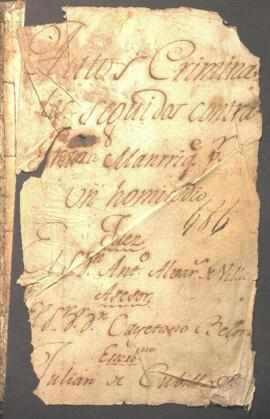 Autos Crimina
les seguidos contra
Manrriq.e p.r
un homisidio
486
Juez
El S.r D.n Ant.o Alvar.z de Villa
Asesor
D.n Cayetano Belon
Escno
Julian de Cubillas